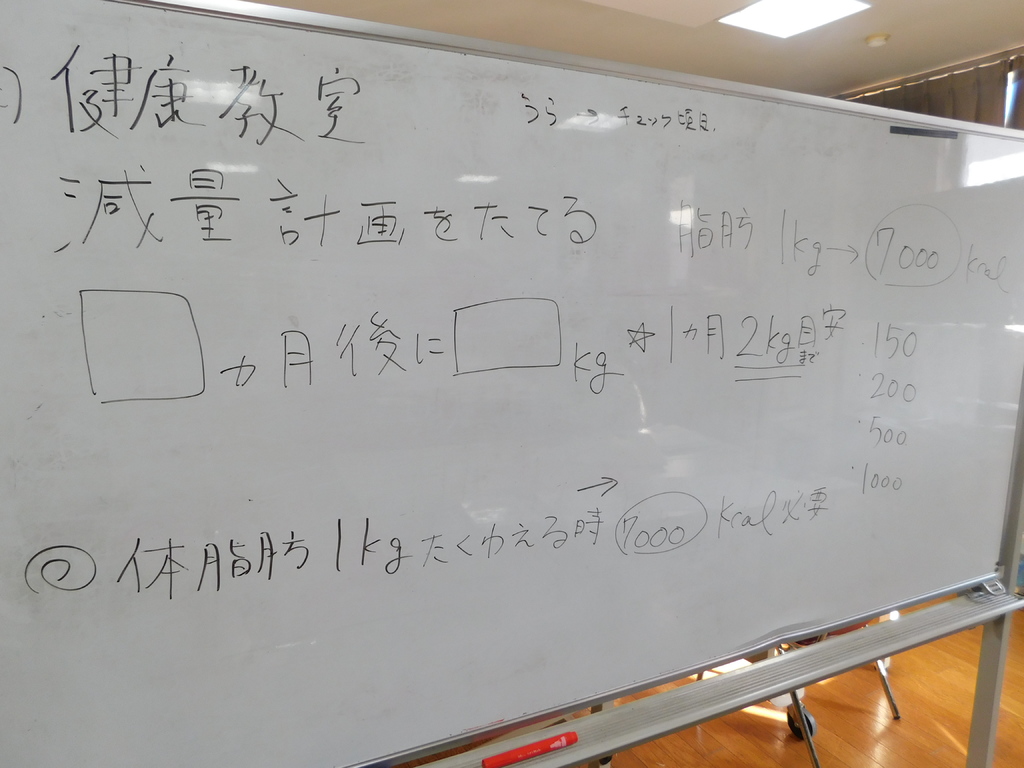 健康教室
うら→チェック項目.
減量計画をたてる
脂肪 1kg→7000 kcal
□カ月後に□kg ☆1カ月2kg目安まで
・150
・200
・500
・1000
◎体脂肪1kgたくわえる時→7000 kcal必要